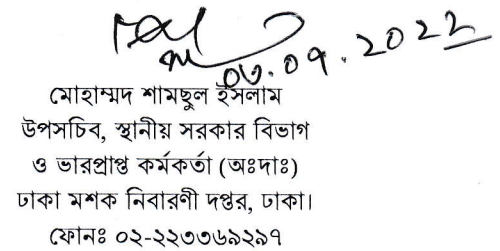 মোহাম্মদ শামছুল ইসলাম
উপসচিব, স্থানীয় সরকার বিভাগ
ও ভারপ্রাপ্ত কর্মকর্তা (অঃদাঃ)
ঢাকা মশক নিবারণী দপ্তর, ঢাকা।
ফোনঃ ০২-২২৩৩৬৯২৯৭